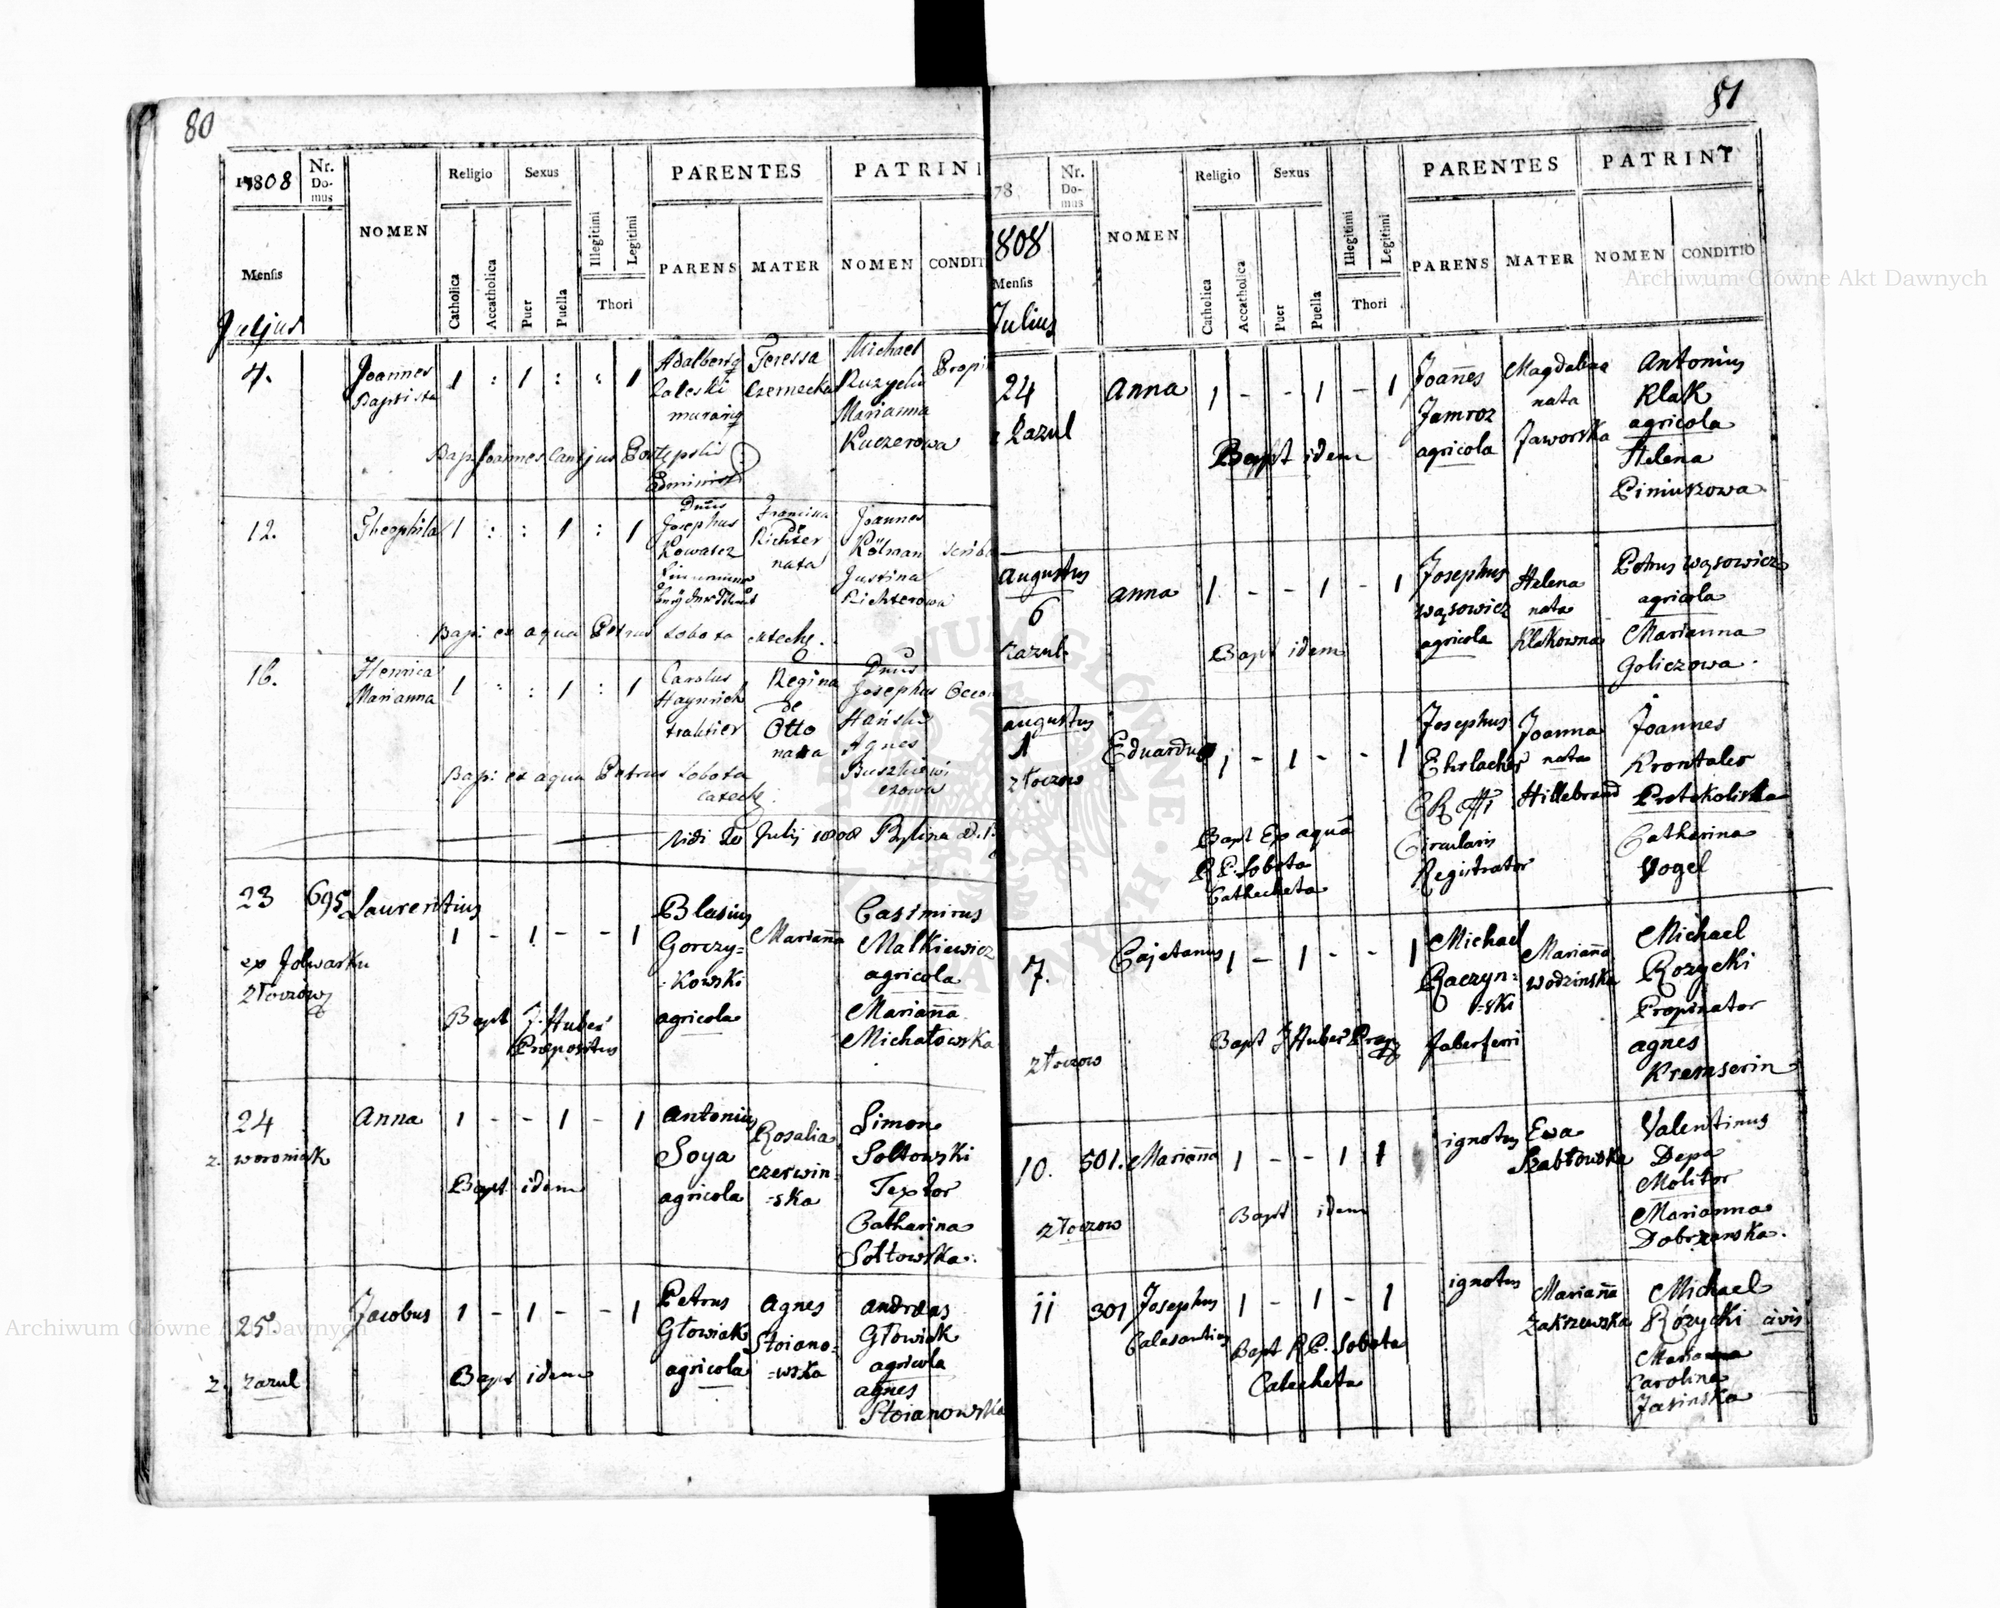 80
1808
Nr. Domus
NOMEN
Religio
Sexus
Illegitimi
Legitimi
PARENTES
PATRINI
Mensis
Catholica
Accatholica
Puer
Puella
Thori
PARENS
MATER
NOMEN
CONDIT
Juljus
4.
Joannes Baptista
1 : 1 : : 1
Adalbertq
Zaleski
murariq
Teressa
Czernecka
Michael
Ruzycki
Marianna
Kuczerowa
Propi
Bap: Joannes Cantjus
12.
Theophila
1 : : 1 : 1
Dnus
Josephus
Kowatcz
Francisca
de
Richter
nata
Joannes
Kölman
Justina
Richterowa
scrib
Bap: ex aqua Petrus Sobota catech.
16.
Henrica
Marianna
1 : : 1 : 1
Carolus
Haynrich
traktier
Regina
de
Otto
nata
Dnus
Josephus
Hański
Agnes
Buszkiewi
czowa
Oecon
Bap: ex aqua Petrus Sobota
catech.
Vidi 20 Julij 1808
23
695
Laurentius
1 - 1 - - 1
ex Folwarku
Złoczow
Blasius
Gorczy=
=kowski
agricola
Mariana
Casimirus
Malkiewicz
agricola
Mariana
Michałowska
Bapt J. Huber
Præpositus
24
z. woroniak
Anna
1 - - 1 - 1
Antonius
Soya
agricola
Rosalia
Czerwin=
=ska
Simon
Soltowski
Textor
Catharina
Sołtowska.
Bapt idem
25
z. Zazul
Jacobus
1 - 1 - - 1
Petrus
Głowiak
agricola
Agnes
Stoiano=
=wska
Andreas
Głowiak
agricola
agnes
Stoianowska
Bapt idem
81
78
1808
Nr. Domus
NOMEN
Religio
Sexus
Illegitimi
Legitimi
PARENTES
PATRINI
Mensis
Catholica
Accatholica
Puer
Puella
Thori
PARENS
MATER
NOMEN
CONDITIO
Julius
24
z Zazul
Anna
1 - - 1 - 1
Joanes
Jamroz
agricola
Magdalena
nata
Jaworska
Antonius
Klak
agricola
Helena
Piniuszowa
Bapt idem
Augustus
6
Zazul.
Anna
1 - - 1 - 1
Josephus
Wąsowicz
agricola
Helena
nata
Klakowna
Petrus Wąsowicz
agricola
Marianna
Goliczowa.
Bapt idem
augustus
1
złoczow
Eduardus
1 - 1 - - 1
Josephus
Ehrlacher
Circularis
Registrator
Joanna
nata
Hillebrand
Joannes
Krontaler
Protokolista
Catharina
Vogel
Bapt Ex aqua
R.P. Sobota
Cathecheta
7.
złoczow
Cajetanus
1 - 1 - - 1
Michael
Raczyn=
=ski
faber ferri
Mariana
wodzinska
Michael
Rozycki
Propinator
agnes
Kremserin
Bapt J Huber Præp
10.
501.
złoczow
Mariana
1 - - 1 1
ignotus
Ewa
Szabłowska
Valentinus
Depa
Molitor
Marianna
Dobrzanska.
Bapt idem
11
301
Josephus
Calasantius
1 - 1 - 1
ignotus
Mariana
Zakrzewska
Michael
Różycki civis
Carolina
Jasinska
Bapt R.P. Sobota
Catecheta
Archiwum Główne Akt Dawnych
Archiwum Główne Akt Dawnych
ARCHIWUM GŁÓWNE AKT DAWNYCH